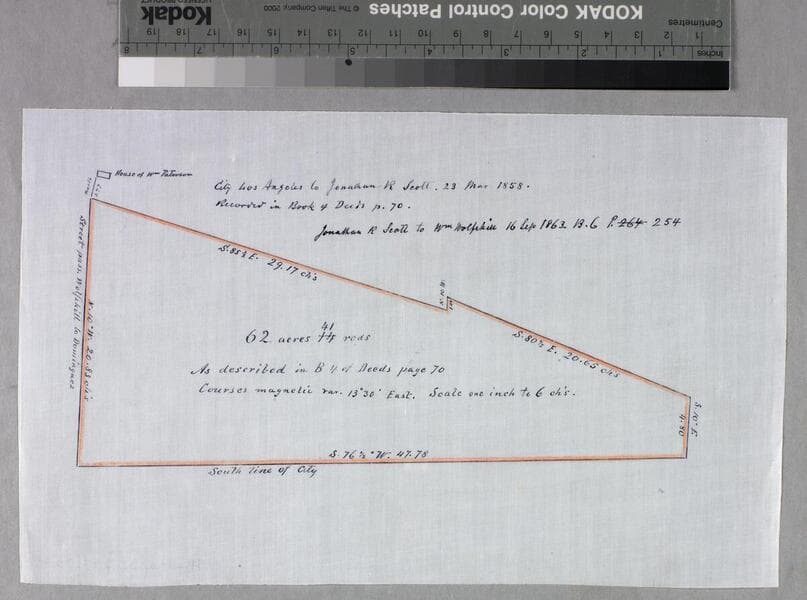 Kodak
LICENSED PRODUCT
© The Tiffen Company, 2000
KODAK Color Control Patches
Centimetres
1 2 3 4 5 6 7 8 9 10 11 12 13 14 15 16 17 18 19
Inches
1 2 3 4 5 6 7 8
House of Wm
City Los Angeles to Jonathan R Scott. 23 Mar 1858.
Recorded in Book 4 Deeds p. 70.
Jonathan R Scott to Wm Wolfskill 16 Sep 1863. B.6 P. 264 254
S. 85¼ E. 29.17 ch's
N. 10 W.
S. 80½ E. 20.65 ch's
S. 10° E.
4.80
Street from Wolfskill to Domingues
N. 10° W. 20.83 ch's
62 acres 41 rods
As described in B 4 of Deeds page 70
Courses magnetic var. 13° 30' East. Scale one inch to 6 ch's.
S. 76½° W. 47.78
South line of City